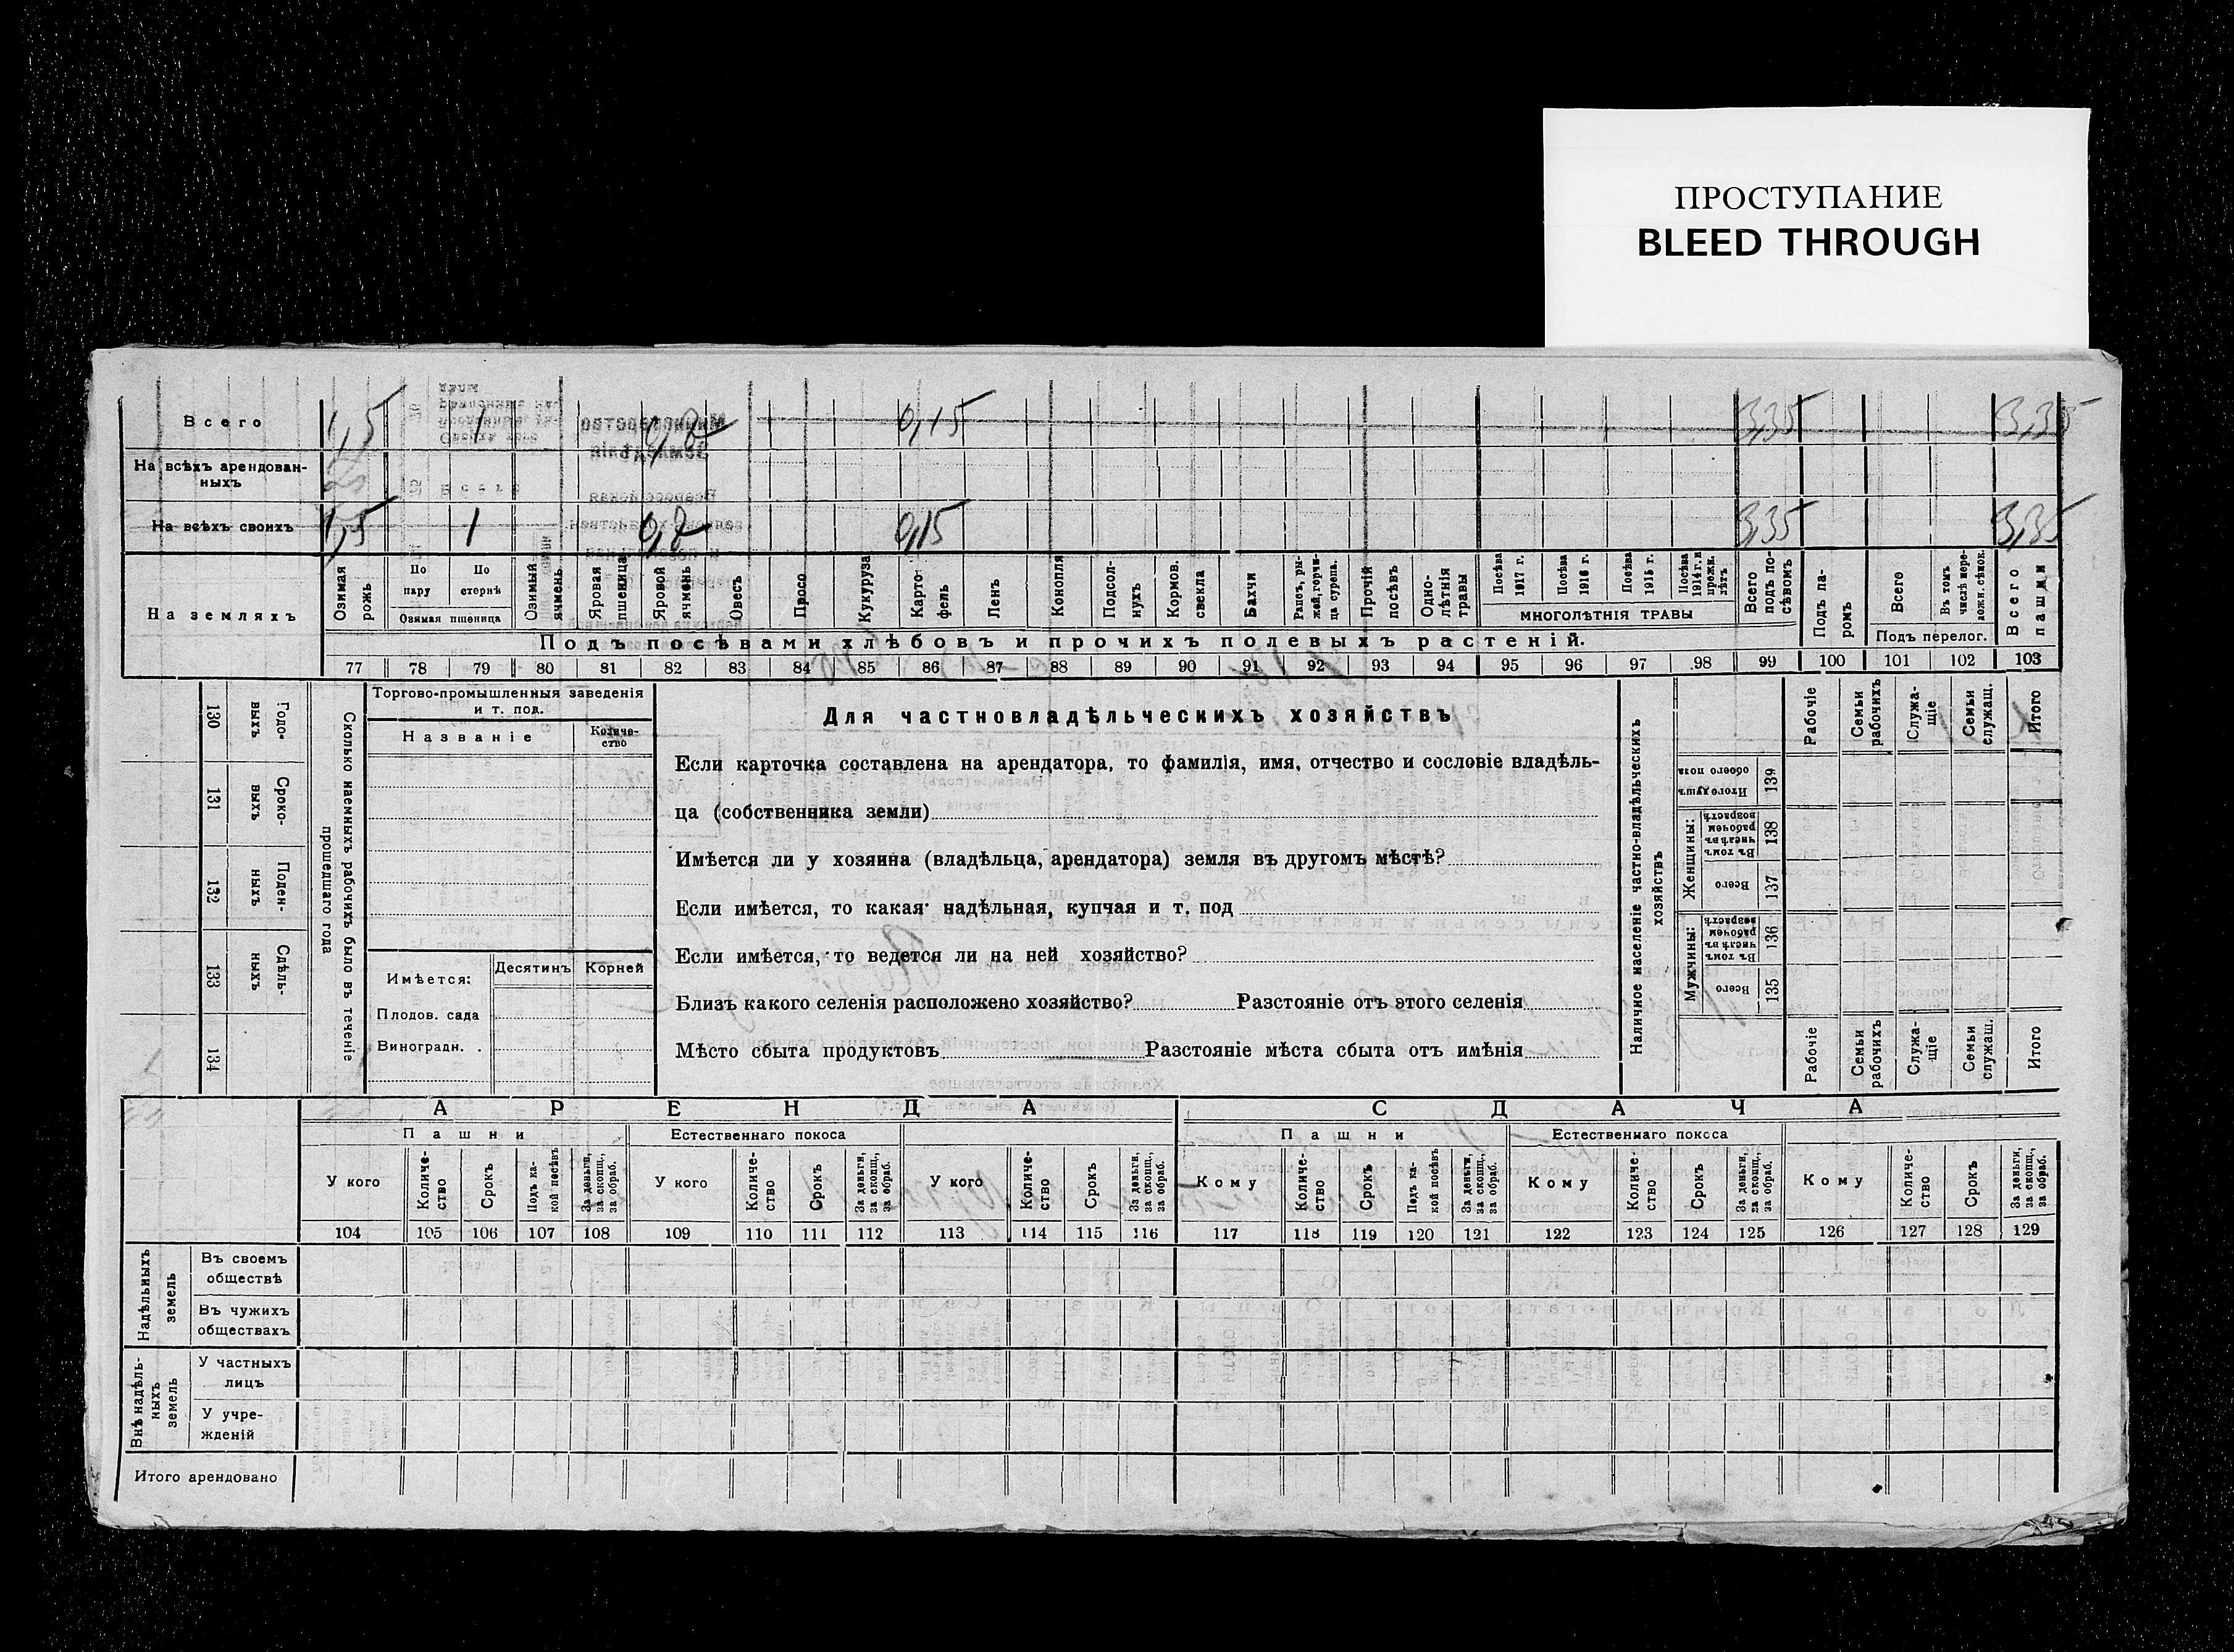 ПРОСТУПАНИЕ
BLEED THROUGH
Всего 1,5 1 0,15 3,35 3,35
На всѣхъ арендован-
ныхъ
На всѣхъ своихъ 1,5 1 0,7 0,15 3,35 3,35
На земляхъ
Озимая рожь
По пару
По стернѣ
Озимая пшеница
Озимый ячмень
Яровая пшеница
Яровой ячмень
Овесъ
Просо
Кукуруза
Карто-
фель
Ленъ
Конопля
Подсол-
нухъ
Кормов. свекла
Бахчи
Рапсъ, ры-
жей, горчи-
ца сурепа.
Прочій посѣвъ
Одно-
лѣтнія травы
Посѣва 1917 г.
Посѣва 1916 г.
Посѣва 1915 г.
Посѣва 1914 г. и прежн. лѣтъ
МНОГОЛѢТНІЯ ТРАВЫ
Всего подъ по-
сѣвомъ
Подъ па-
ромъ
Всего
Въ томъ числѣ пере-
ложн. сѣнок.
Подъ перелог.
Всего пашди
Подъ посѣвами хлѣбовъ и прочихъ полевыхъ растеній.
77 78 79 80 81 82 83 84 85 86 87 88 89 90 91 92 93 94 95 96 97 98 99 100 101 102 103
Годо-
выхъ
130
Сроко-
выхъ
131
Поден-
ныхъ
132
Сдѣль-
ныхъ
133
134
Сколько наемныхъ рабочихъ было въ теченіе
прошедшаго года
Торгово-промышленныя заведенія
и т. под.
Названіе
Количе-
ство
Имѣется:
Десятинъ
Корней
Плодов. сада
Виноградн.
Для частновладѣльческихъ хозяйствъ
Если карточка составлена на арендатора, то фамилія, имя, отчество и сословіе владѣль-
ца (собственника земли)
Имѣется ли у хозяина (владѣльца, арендатора) земля въ другомъ мѣстѣ?
Если имѣется, то какая надѣльная, купчая и т. под
Если имѣется, то ведется ли на ней хозяйство?
Близъ какого селенія расположено хозяйство? Разстояніе отъ этого селенія
Мѣсто сбыта продуктовъ Разстояніе мѣста сбыта отъ имѣнія
Наличное населеніе частно-владѣльческихъ
хозяйствъ
Рабочіе
Семьи рабочихъ
Служа-
щіе
Семьи служащ.
Итого
Итого душъ обоего пола
139
Женщины:
Въ томъ числѣ въ рабочемъ возрастѣ
138
Всего
137
Мужчины:
Въ томъ числѣ въ рабочемъ возрастѣ
136
Всего
135
Рабочіе
Семьи рабочихъ
Служа-
щіе
Семьи служащ.
Итого
АРЕНДА
СДАЧА
Пашни
Естественнаго покоса
Пашни
Естественнаго покоса
У кого
Количе-
ство
Срокъ
Подъ ка-
кой посѣвъ
За деньги, за скопщ., за обраб.
У кого
Количе-
ство
Срокъ
За деньги, за скопщ., за обраб.
У кого
Количе-
ство
Срокъ
За деньги, за скопщ., за обраб.
Кому
Количе-
ство
Срокъ
Подъ ка-
кой посѣвъ
За деньги, за скопщ., за обраб.
Кому
Количе-
ство
Срокъ
За деньги, за скопщ., за обраб.
Кому
Количе-
ство
Срокъ
За деньги, за скопщ., за обраб.
104 105 106 107 108 109 110 111 112 113 114 115 116 117 118 119 120 121 122 123 124 125 126 127 128 129
Надѣльныхъ
земель
Въ своемъ
обществѣ
Въ чужихъ
обществахъ
Внѣ надѣль-
ныхъ
земель
У частныхъ
лицъ
У учре-
жденій
Итого арендовано